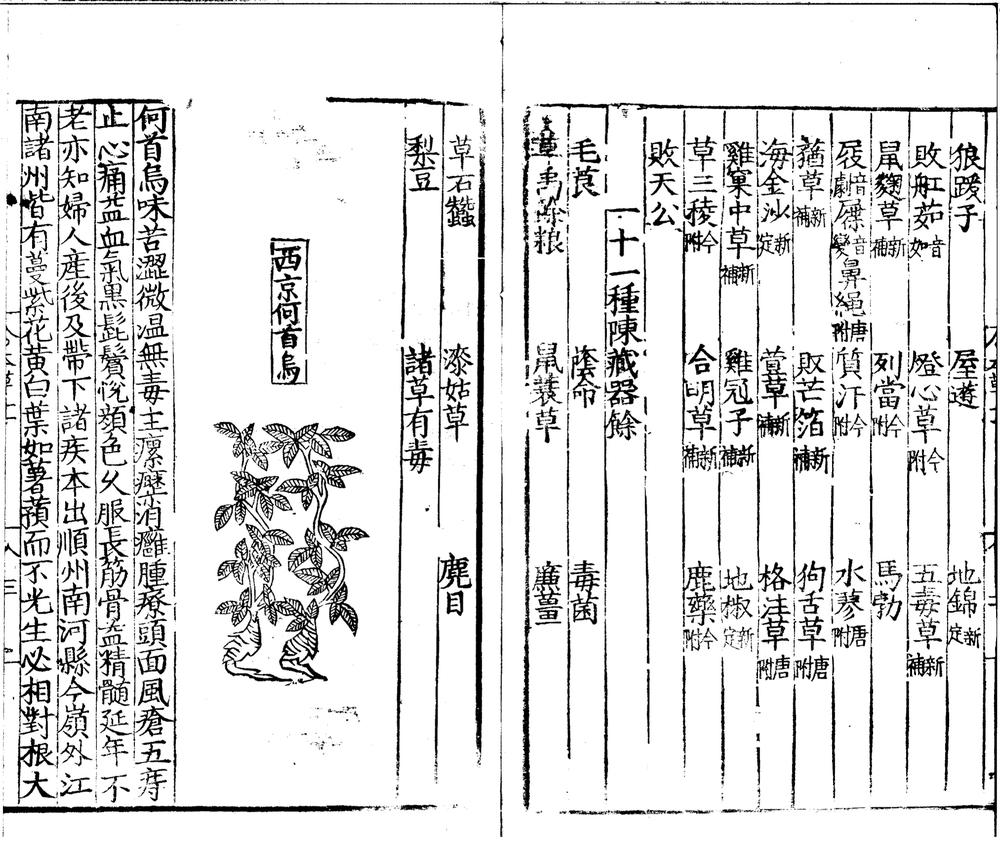 狼跋子 屋遊 地錦新定
敗舡茹音如 燈心草今附 五毒草新補
鼠麴草新補 列當今附 馬勃
屐音劇屧音變鼻繩唐附 質汗今附 水蓼唐附
蕕草新補 敗芒箔新補 狗舌草唐附
海金沙新定 萱草新補 格注草唐附
雞窠中草新補 雞冠子新補 地椒新定
草三稜今附 合明草新補 鹿藥今附
敗天公
一十一種陳藏器餘
毛莨 蔭命 毒菌
草禹餘粮 鼠蓑草 廉薑
草石蠶 漆姑草 麂目
梨豆 諸草有毒
西京何首烏
何首烏味苦澀微温無毒主瘰癧消癰腫療頭面風瘡五痔
止心痛益血氣黑髭鬢悅顏色久服長筋骨益精髓延年不
老亦知婦人産後及帶下諸疾本出順州南河縣今嶺外江
南諸州皆有蔓紫花黄白葉如薯蕷而不光生必相對根大